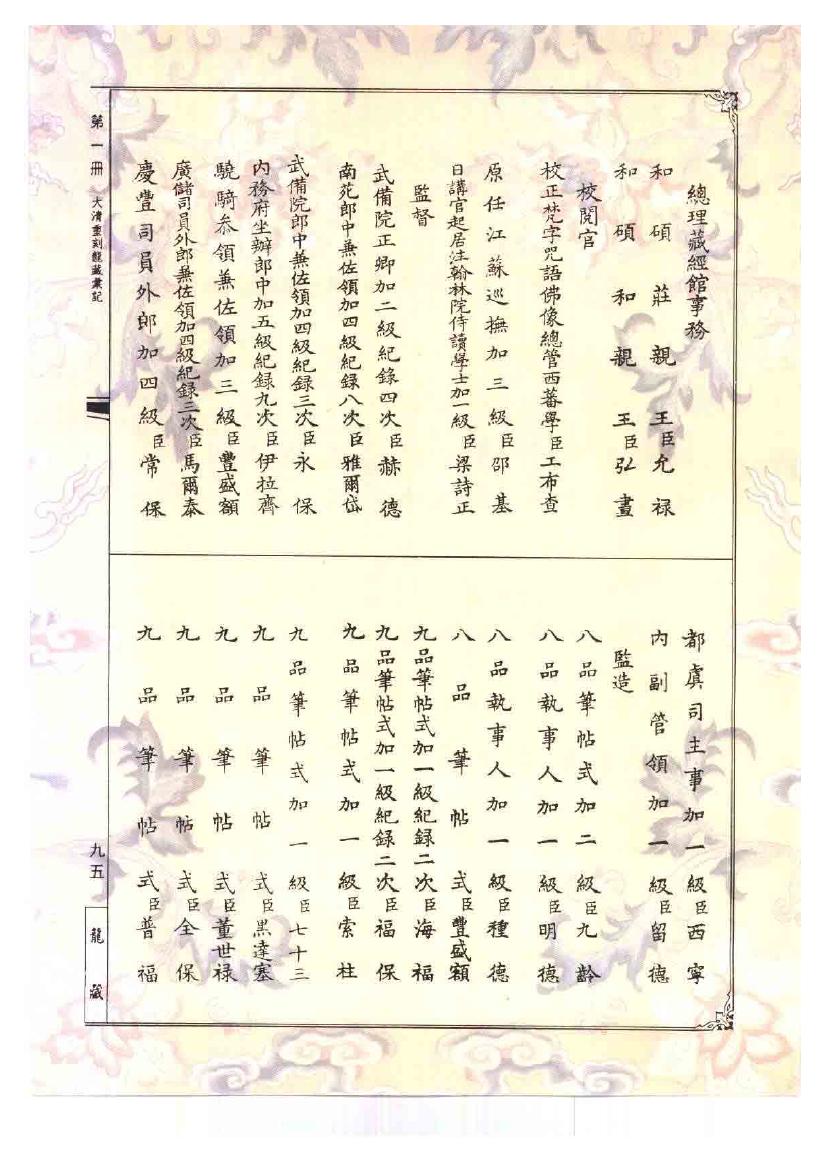 總理藏經館事務
和碩莊親王臣允祿
和碩和親王臣弘晝
校閱官
校正梵字咒語佛像總管西蕃學臣工布查
原任江蘇巡撫加三級臣邵基
日講官起居注翰林院侍讀學士加一級臣梁詩正
監督
武備院正卿加二級紀錄四次臣赫德
南苑郎中兼佐領加四級紀錄八次臣雅爾岱
武備院郎中兼佐領加四級紀錄三次臣永保
內務府坐辦郎中加五級紀錄九次臣伊拉齊
驍騎叅領兼佐領加三級臣豐盛額
廣儲司員外郎兼佐領加四級紀錄三次臣馬爾泰
慶豐司員外郎加四級臣常保
都虞司主事加一級臣西寧
內副管領加一級臣留德
監造
八品筆帖式加二級臣九齡
八品執事人加一級臣明德
八品執事人加一級臣種德
八品筆帖式臣豐盛額
九品筆帖式加一級紀錄二次臣海福
九品筆帖式加一級紀錄二次臣福保
九品筆帖式加一級臣索柱
九品筆帖式加一級臣七十三
九品筆帖式臣黑達塞
九品筆帖式臣董世祿
九品筆帖式臣全保
九品筆帖式臣普福
第一冊 大清重刻龍藏彙記
九五
龍藏